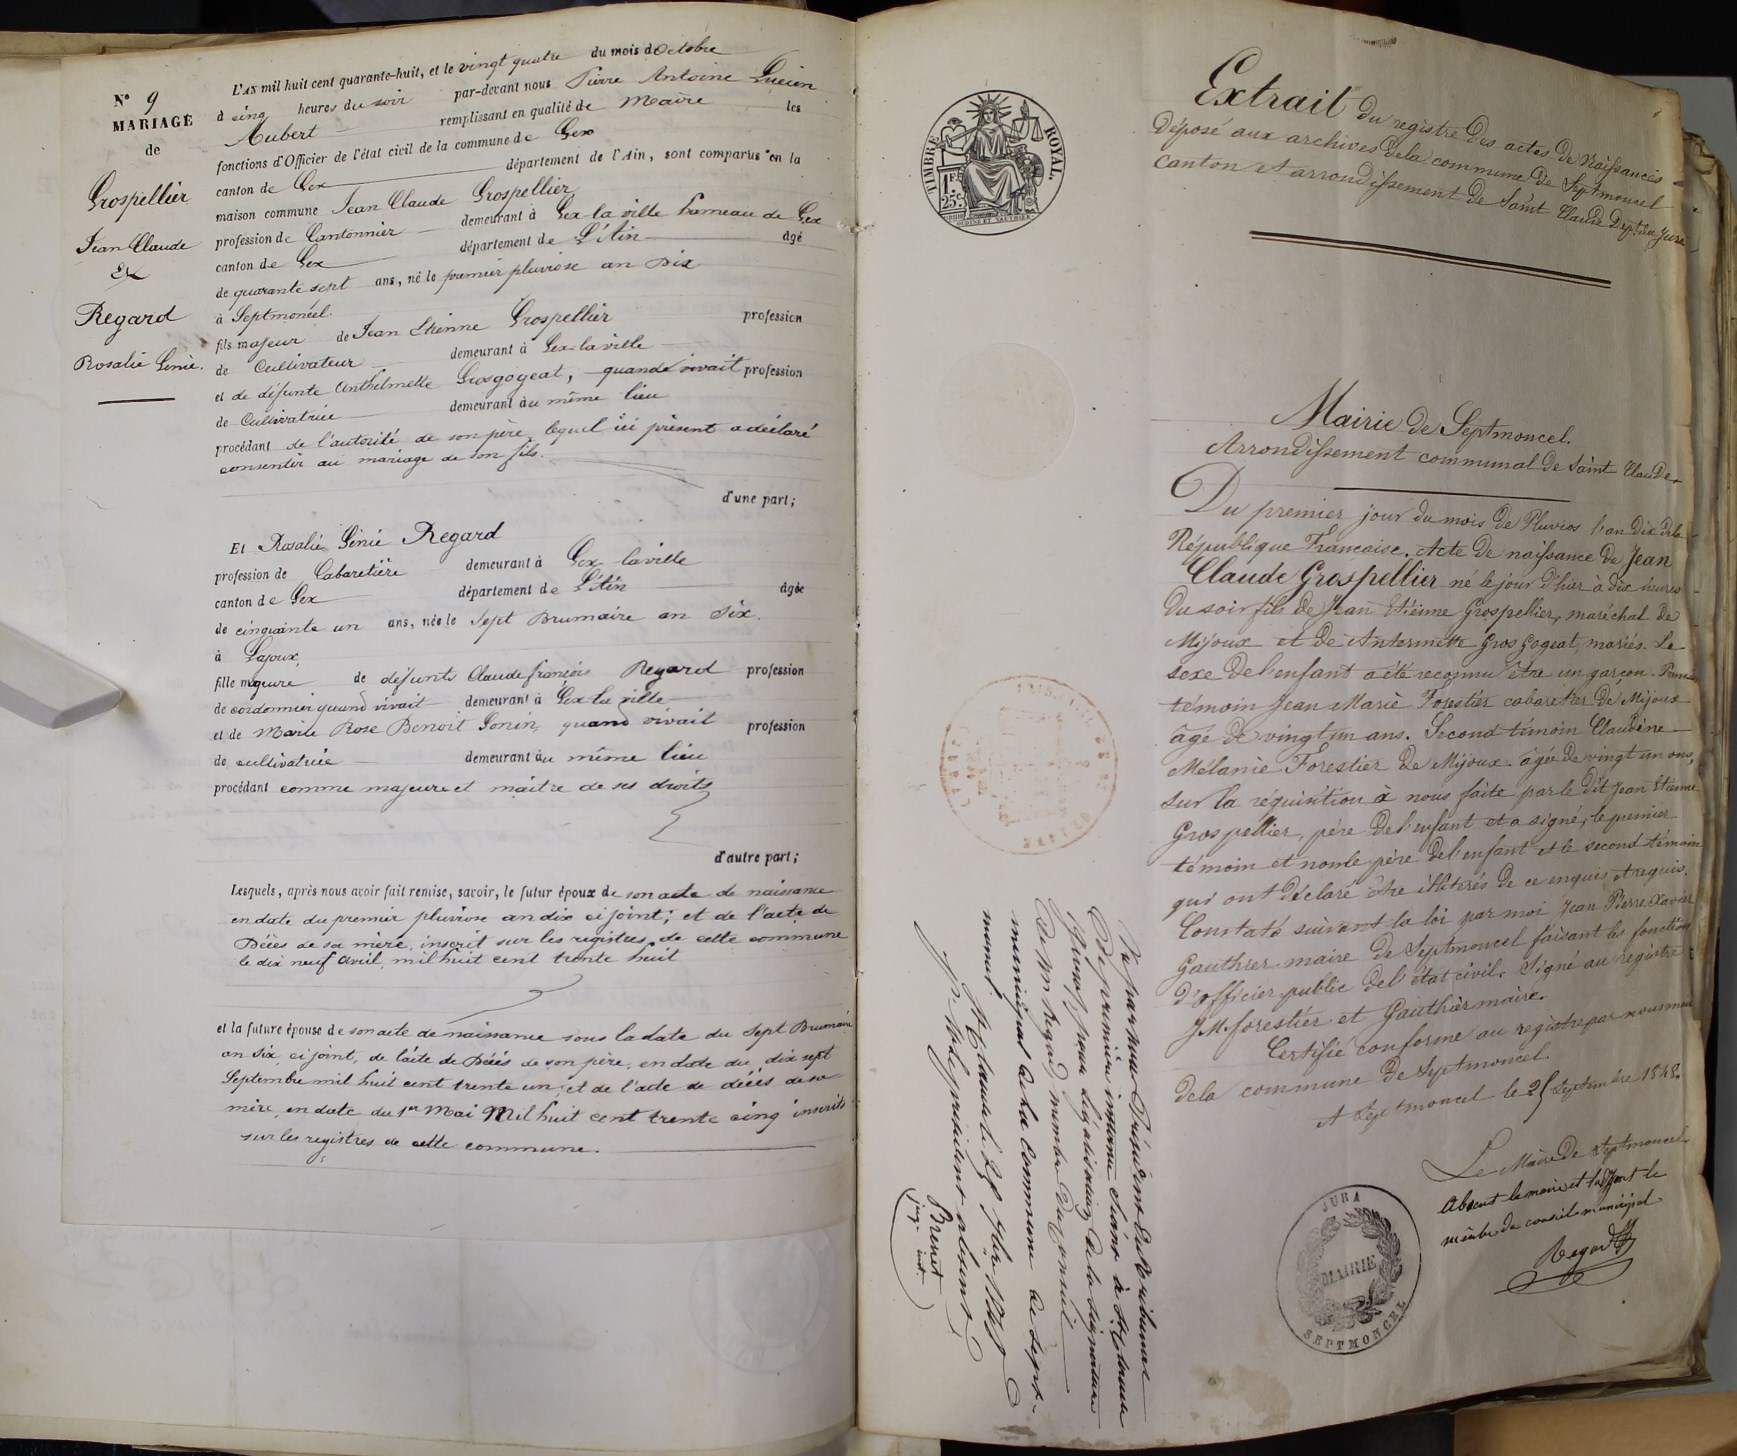 N° 9
MARIAGE
de
Grospellier
Jean Claude
Et
Regard
Rosalie Génie.
L'AN mil huit cent quarante-huit, et le vingt quatre du mois d'Octobre
à cinq heures du soir par-devant nous Pierre Antoine Lucien
Aubert remplissant en qualité de Maire les
fonctions d'Officier de l'état civil de la commune de Gex
canton de Gex département de l'Ain, sont comparus en la
maison commune Jean Claude Grospellier
profession de Cantonnier demeurant à Gex la ville hameau de Gex
canton de Gex département de L'Ain âgé
de quarante sept ans, né le premier pluviose an Dix
à Septmoncel.
fils majeur de Jean Etienne Grospellier profession
de Cultivateur demeurant à Gex-la ville
et de défunte Anthelmette Grosgogeat, quand vivait profession
de Cultivatrice demeurant au même lieu
procédant de l'autorité de son père lequel ici présent a déclaré
consentir au mariage de son fils.
d'une part;
Et Rosalie Génie Regard
profession de Cabaretière demeurant à Gex-la ville
canton de Gex département de L'Ain âgée
de cinquante un ans, née le Sept Brumaire an Six.
à Lajoux,
fille majeure de défunts Claude françois Regard profession
de cordonnier quand vivait demeurant à Gex la ville
et de Marie Rose Benoit Gonin, quand vivait profession
de cultivatrice demeurant au même lieu
procédant comme majeure et maître de ses droits
d'autre part;
Lesquels, après nous avoir fait remise, savoir, le futur époux de son acte de naissance
en date du premier pluviose an dix ci joint; et de l'acte de
Décès de sa mère, inscrit sur les registres de cette commune
le dix neuf Avril, mil huit cent trente huit
et la future épouse de son acte de naissance sous la date du Sept Brumaire
an Six, ci joint, de l'acte de Décès de son père, en date du dix sept
Septembre mil huit cent trente un, et de l'acte de décès de sa
mère, en date du 1er Mai Mil huit cent trente cinq inscrits
sur les registres de cette commune.
TIMBRE ROYAL.
1F.
25C.
Extrait du registre des actes de Naissances
Déposé aux archives de la commune de Septmoncel
Canton et arrondissement de Saint Claude Dept. du Jura
Mairie de Septmoncel.
Arrondissement communal de Saint Claude
Du premier jour du mois de Pluvios l'an Dix de la
République Francaise. Acte de naissance de Jean
Claude Grospellier né le jour d'hier à dix heures
du soir fils de Jean Etienne Grospellier, maréchal de
Mijoux et de Antermette Gros Gogeat, mariés. Le
sexe de l'enfant a été reconnu être un garçon. Premier
témoin Jean Marie Forestier cabaretier de Mijoux
âgé de vingt un ans. Second témoin Claudine
Mélanie Forestier de Mijoux âgée de vingt un ans,
sur la réquisition à nous faite par le dit Jean Etienne
Grospellier, père de l'enfant et a signé, le premier
témoin et non le père de l'enfant et le second témoin
qui ont déclaré être illitérés de ce enquis et requis.
Constaté suivant la loi par moi Jean Pierre Xavier
Gauthier maire de Septmoncel faisant les fonctions
d'officier public de l'état civil. Signé au registre
JM forestier et Gauthier maire.
Certifié conforme au registre par nous maire
de la commune de Septmoncel.
A Septmoncel le 25 Septembre 1848.
Le Maire de Septmoncel.
Absent le maire et l'adjoint le
membre du conseil municipal
Regard
JURA
MAIRIE
SEPTMONCEL
Vu par nous Président du tribunal
de première instance séant à St Claude
Jura pour légalisation de la signature
de Mr Regard membre du conseil
municipal de la commune de Sept-
moncel.
St Claude le 25 7bre 1848
Pr le président absent
Brenet
juge